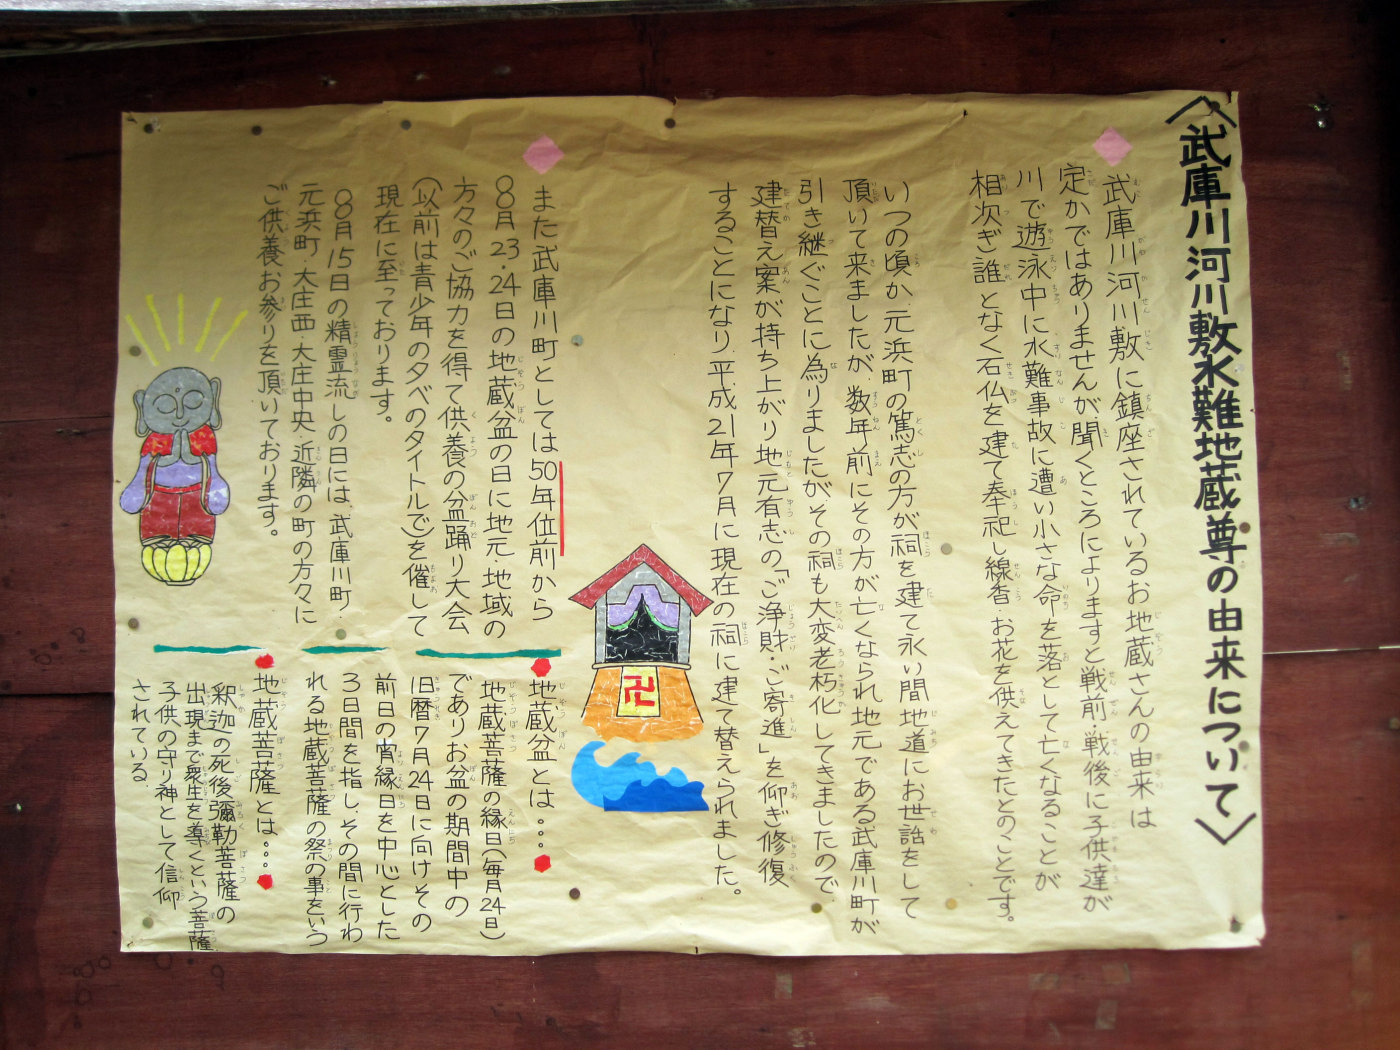 〈武庫川河川敷水難地蔵尊の由来について〉
武庫川河川敷に鎮座されているお地蔵さんの由来は
定かではありませんが聞くところによりますと戦前・戦後に子供達が
川で遊泳中に水難事故に遭い小さな命を落として亡くなることが
相次ぎ誰となく石仏を建て奉祀し線香・お花を供えてきたとのことです。
いつの頃か元浜町の篤志の方が祠を建て永い間地道にお世話をして
頂いて来ましたが、数年前にその方が亡くなられ地元である武庫川町が
引き継ぐことに為りましたがその祠も大変老朽化してきましたので、
建替え案が持ち上がり地元有志の「ご浄財・ご寄進」を仰ぎ修復
することになり平成21年7月に現在の祠に建て替えられました。
また武庫川町としては50年位前から
8月23・24日の地蔵盆の日に地元・地域の
方々のご協力を得て供養の盆踊り大会
(以前は青少年の夕べのタイトルで)を催して
現在に至っております。
8月15日の精霊流しの日には、武庫川町・
元浜町・大庄西・大庄中央・近隣の町の方々に
ご供養、お参りを頂いております。
地蔵盆とは・・・・
地蔵菩薩の縁日(毎月24日)
でありお盆の期間中の
旧暦7月24日に向けその
前日の宵縁日を中心とした
3日間を指し、その間に行わ
れる地蔵菩薩の祭の事をいう
地蔵菩薩とは・・・・
釈迦の死後彌勒菩薩の
出現まで衆生を導くという菩薩
子供の守り神として信仰
されている.
卍